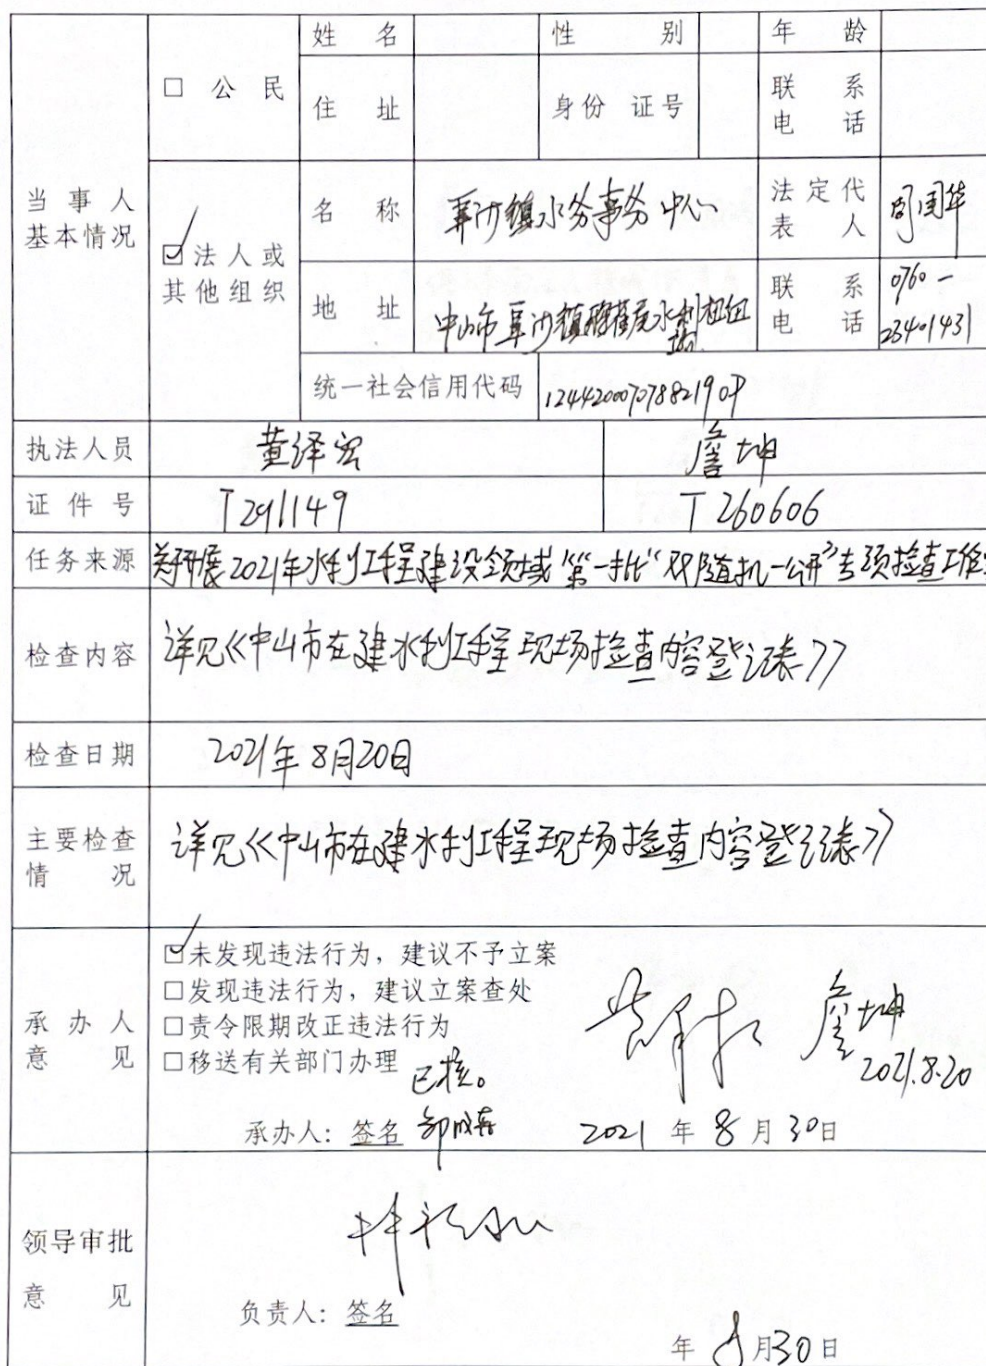 姓名 性别 年龄
□公民
住址 身份证号 联系
电话
当事人
基本情况
名称 覃沙镇水务事务中心 法定代
表人 周国华
☑法人或
其他组织
地址 中山市 镇 水利枢纽 联系
电话 0760-
23401431
统一社会信用代码 12442000707882190P
执法人员 黄泽宏 詹坤
证件号 T291149 T260606
任务来源 关于开展2021年水利工程建设领域“第一批“双随机一公开”专项检查工作
检查内容 详见《中山市在建水利工程现场检查内容登记表》
检查日期 2021年8月20日
主要检查
情况 详见《中山市在建水利工程现场检查内容登记表》
☑未发现违法行为，建议不予立案
□发现违法行为，建议立案查处
承办人
意见
□责令限期改正违法行为 詹坤
□移送有关部门办理 已核。 2021.8.20
承办人：签名 2021年8月30日
领导审批
意见
负责人：签名
年8月30日